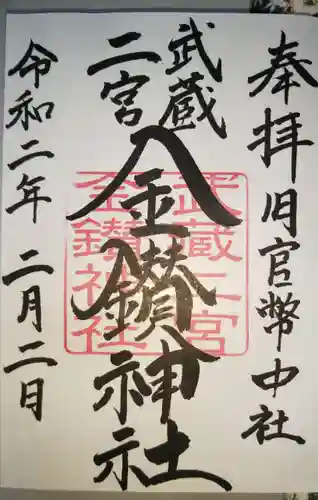 奉拝
旧官幣中社
武蔵
二宮
金鑚神社
武蔵二宮
金鑚神社
令和二年二月二日